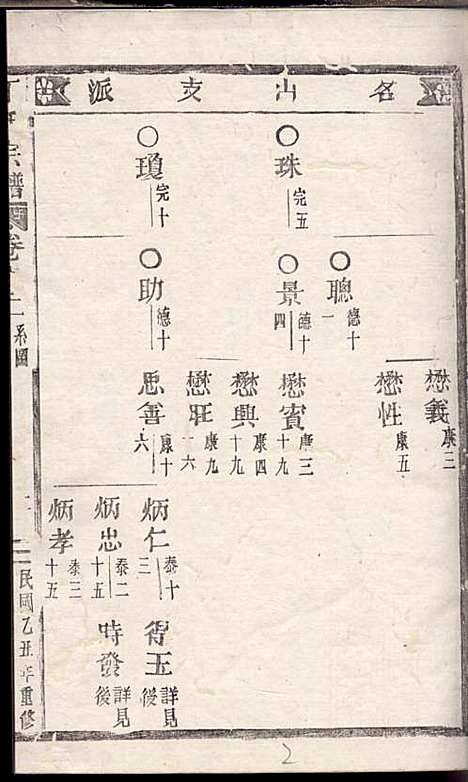 名山支派
懋義 康三
懋性 康五
聰 德十一
珠 完五
景 德十四
懋賓 康三十九
懋興 康四十九
懋旺 康九十六
瓊 完十
助 德十
思善 康十六
炳仁 泰十三
得玉 詳見後
炳忠 泰二十五
時發 詳見後
炳孝 泰三十五
宗譜
卷
系圖
民國乙丑年重修
2